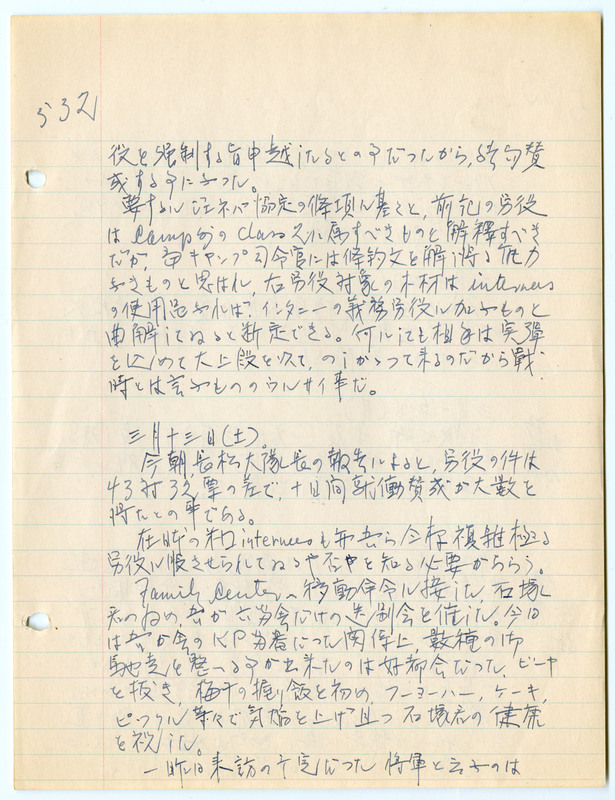 532
役を強制する旨申越したるとの事だつたから、結局賛
成する事になつた。
要するにジュネバ協定の條項に基くと、前記の労役
は Camp の Class 2 に属すべきものと解釋すべき
だが、当キャンプ司令官には條約文を解し得る能力
なきものと思はれ、右労役対象の木材は internees
の使用品なれば、インタニーの義務労役に加ふものと
曲解してゐると断定できる。何れにしても相手は実彈
を込めて大上段を以て、のしかゝつて来るのだから戰
時とは言ふもののウルサイ事だ。
三月十三日(土)。
今朝長松大隊長の報告によると、労役の件は
43対32票の差で、十日間就働賛成が大数を
得たとの事である。
在 の米 internees も 複雑極る
労役に服させられてゐるや否やを知る必要があらう。
Family Center へ移動命令に接した石塚
君のため、吾が 会だけの送別会を催した。今日
は吾が会の KP 当番だつた関係上、数種の御
馳走を整へる事が出来たのは好都合だつた。ビーヤ
を抜き、梅干の握り飯を初め、フーヨーハー、ケーキ、
ピックル等々で気焔を上げ且つ石塚君の健康
を祝した。
一昨日来訪の予定だつた将軍と言ふのは